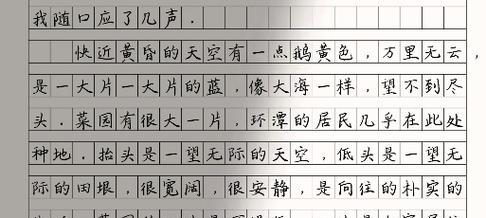 我随口应了几声.
快近黄昏的天空有一点鹅黄色,万里无云,
是一大片一大片的蓝,像大海一样,望不到尽
头.菜园有很大一片,环潭的居民几乎在此处
种地.抬头是一望无际的天空,低头是一望无
际的田垠,很宽阔,很安静,是向往的朴实的